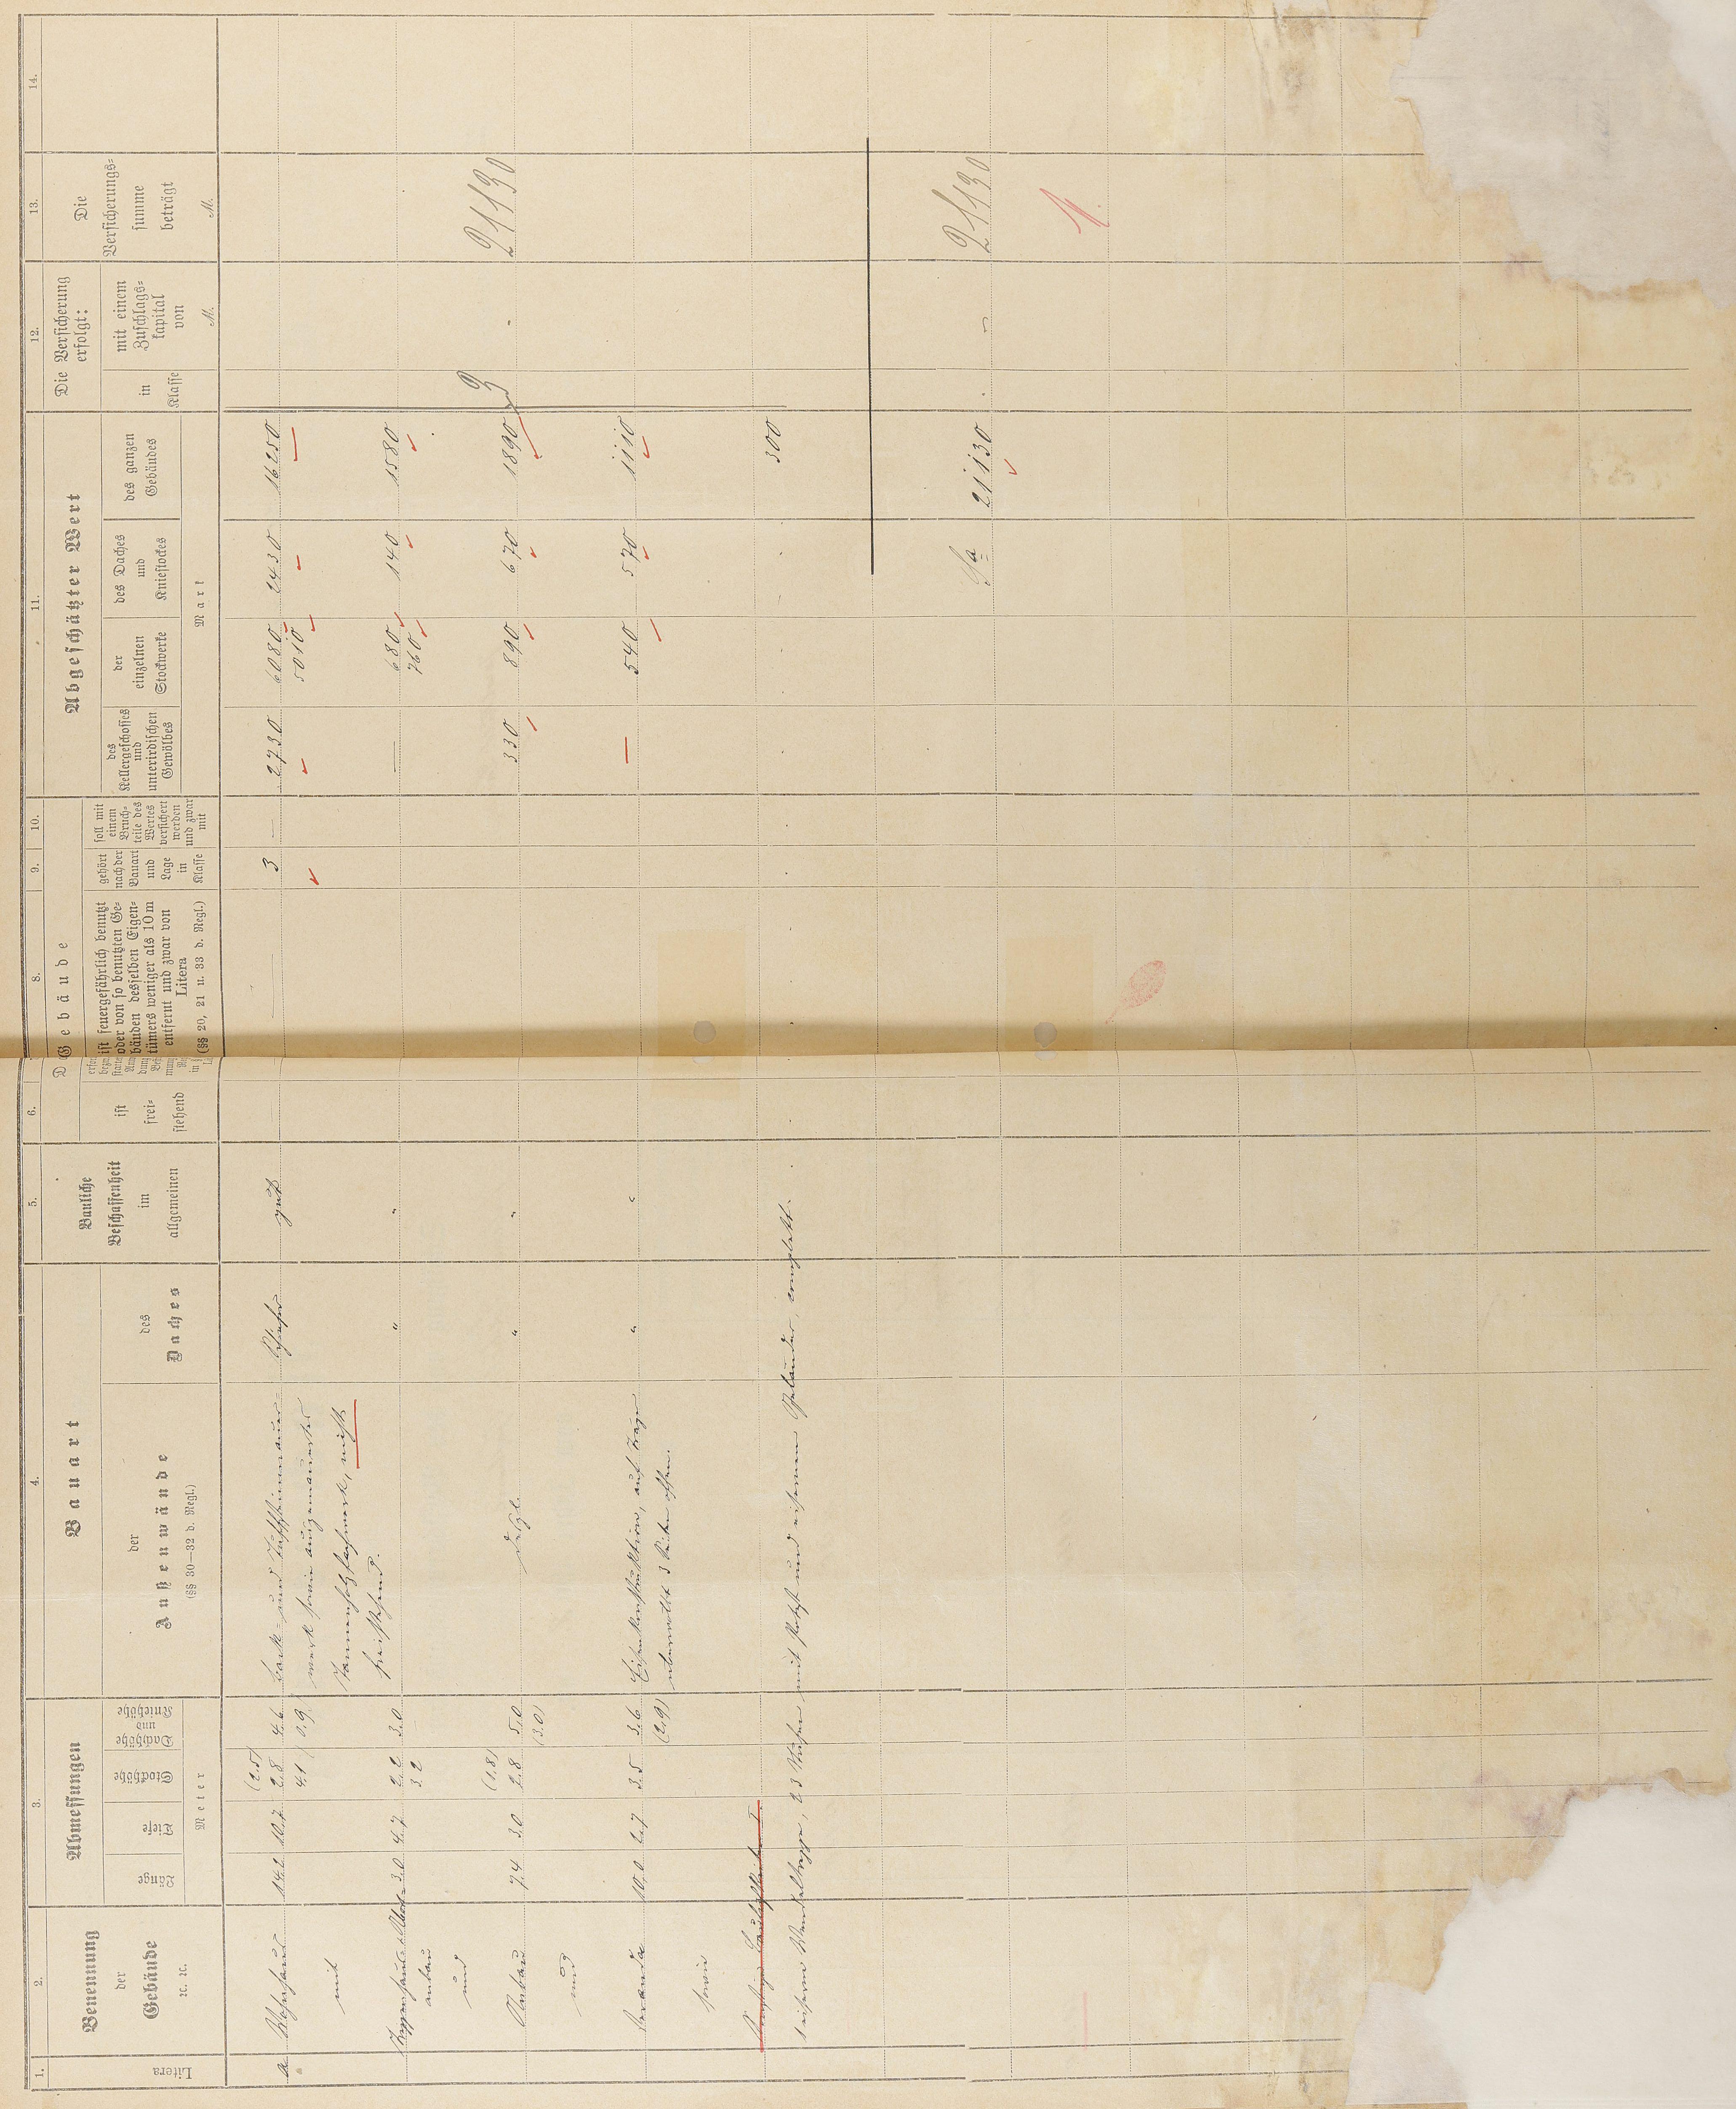 1. 2. 3. 4. 5. 6. 8. 9. 10. 11. 12. 13. 14.
Litera
Benennung
der
Gebäude
ꝛc. ꝛc.
Abmessungen
Länge
Tiefe
Stockhöhe
Dachhöhe
und
Kniehöhe
Meter
Bauart
der
Außenwände
(§§ 30—32 d. Regl.)
des
Daches
Bauliche
Beschaffenheit
im
allgemeinen
Gebäude
ist
frei-
stehend
ist feuergefährlich benutzt
oder von so benutzten Ge-
bäuden desselben Eigen-
tümers weniger als 10 m
entfernt und zwar von
Litera
(§§ 20, 21 u. 33 d. Regl.)
gehört
nach der
Bauart
und
Lage
in
Klasse
soll mit
einem
Bruch-
teile des
Wertes
versichert
werden
und zwar
mit
Abgeschätzter Wert
des
Kellergeschosses
und
unterirdischen
Gewölbes
der
einzelnen
Stockwerke
des Daches
und
Kniestockes
des ganzen
Gebäudes
Mark
Die Versicherung
erfolgt:
in
Klasse
mit einem
Zuschlags-
kapital
von
M.
Die
Versicherungs-
summe
beträgt
M.
(2.5)
a Wohnhaus 14.2 10.7 2.8 4.6 Back- und Tuffsteinmauer- Schiefer gut 3 — 2730 6080 2430 16250
4.1 0.9 werk sowie ausgemauertes 5010
mit Tannenholzfachwerk, nicht
freistehend.
Treppenhaus- 3.0 4.7 2.2 3.0 " " — 680 140 1580
anbau 3.2 760
und
(1.8)
Anbau 7.4 3.0 2.8 5.0 desgl. " " 330 890 670 1890 3 - 21130
(3.0)
und
Veranda 10.0 2.7 3.5 3.6 Eisenkonstruktion, auf " " — 540 570 1110
(2.9) 3 Seiten offen.
sowie
300
1 eiserne Wendeltreppe, 23 Stufen mit und eisernem Geländer, complett.
Sa 21130 . — 21130
1.